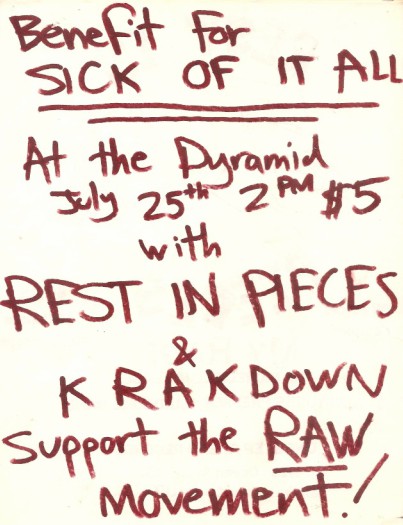 Benefit for
SICK OF IT ALL
At the Pyramid
July 25th 2 PM $5
with
REST IN PIECES
&
KRAKDOWN
Support the RAW
Movement!